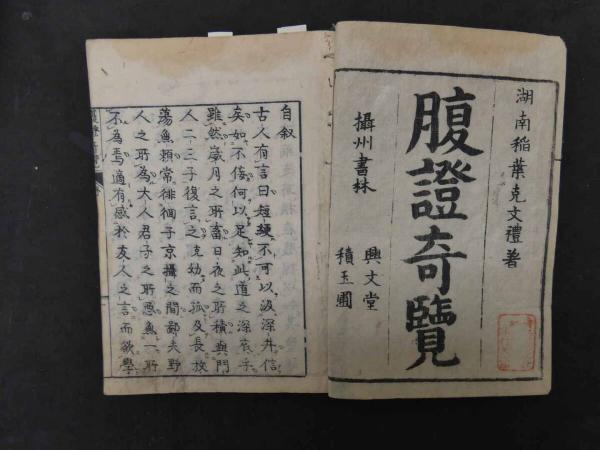 湖南稲葉克文禮著
腹證奇覽
攝州書林
興文堂
積玉圃
自叙
古人有言曰短綆不可以汲深井信
矣如不侫何以足知此道之深哉乎
雖然歳月之所畜日夜之所積與門
人二三子復言之克幼而孤及長放
蕩無頼常徘徊于京攝之間鄙夫野
人之所為大人君子之所惡無一所
不為焉適有感於友人之言而欲學